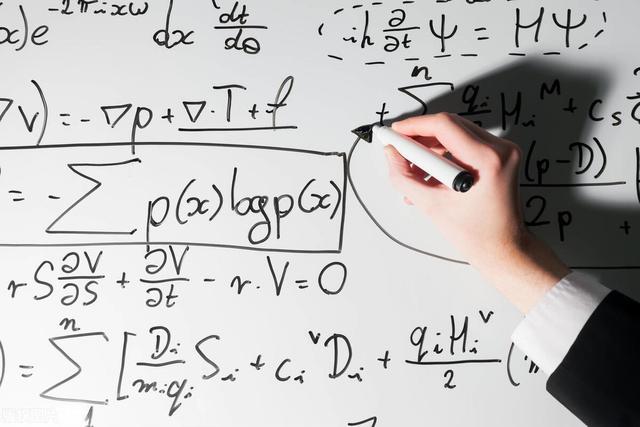 x)e^{-2πixω} dx dt/dθ iħ ∂/∂t Ψ = HΨ
∇v) = -∇p + ∇·T + f
+ n Σ q_i H_i^M + c_s
= -Σ p(x) log p(x)
(p-D) / 2p +
rS ∂V/∂S + ∂V/∂t - r·V = 0
) = n Σ 1 [ D_i/m_i q_i S_i + c_i^v D_i + q_i H_i^v / 2 (